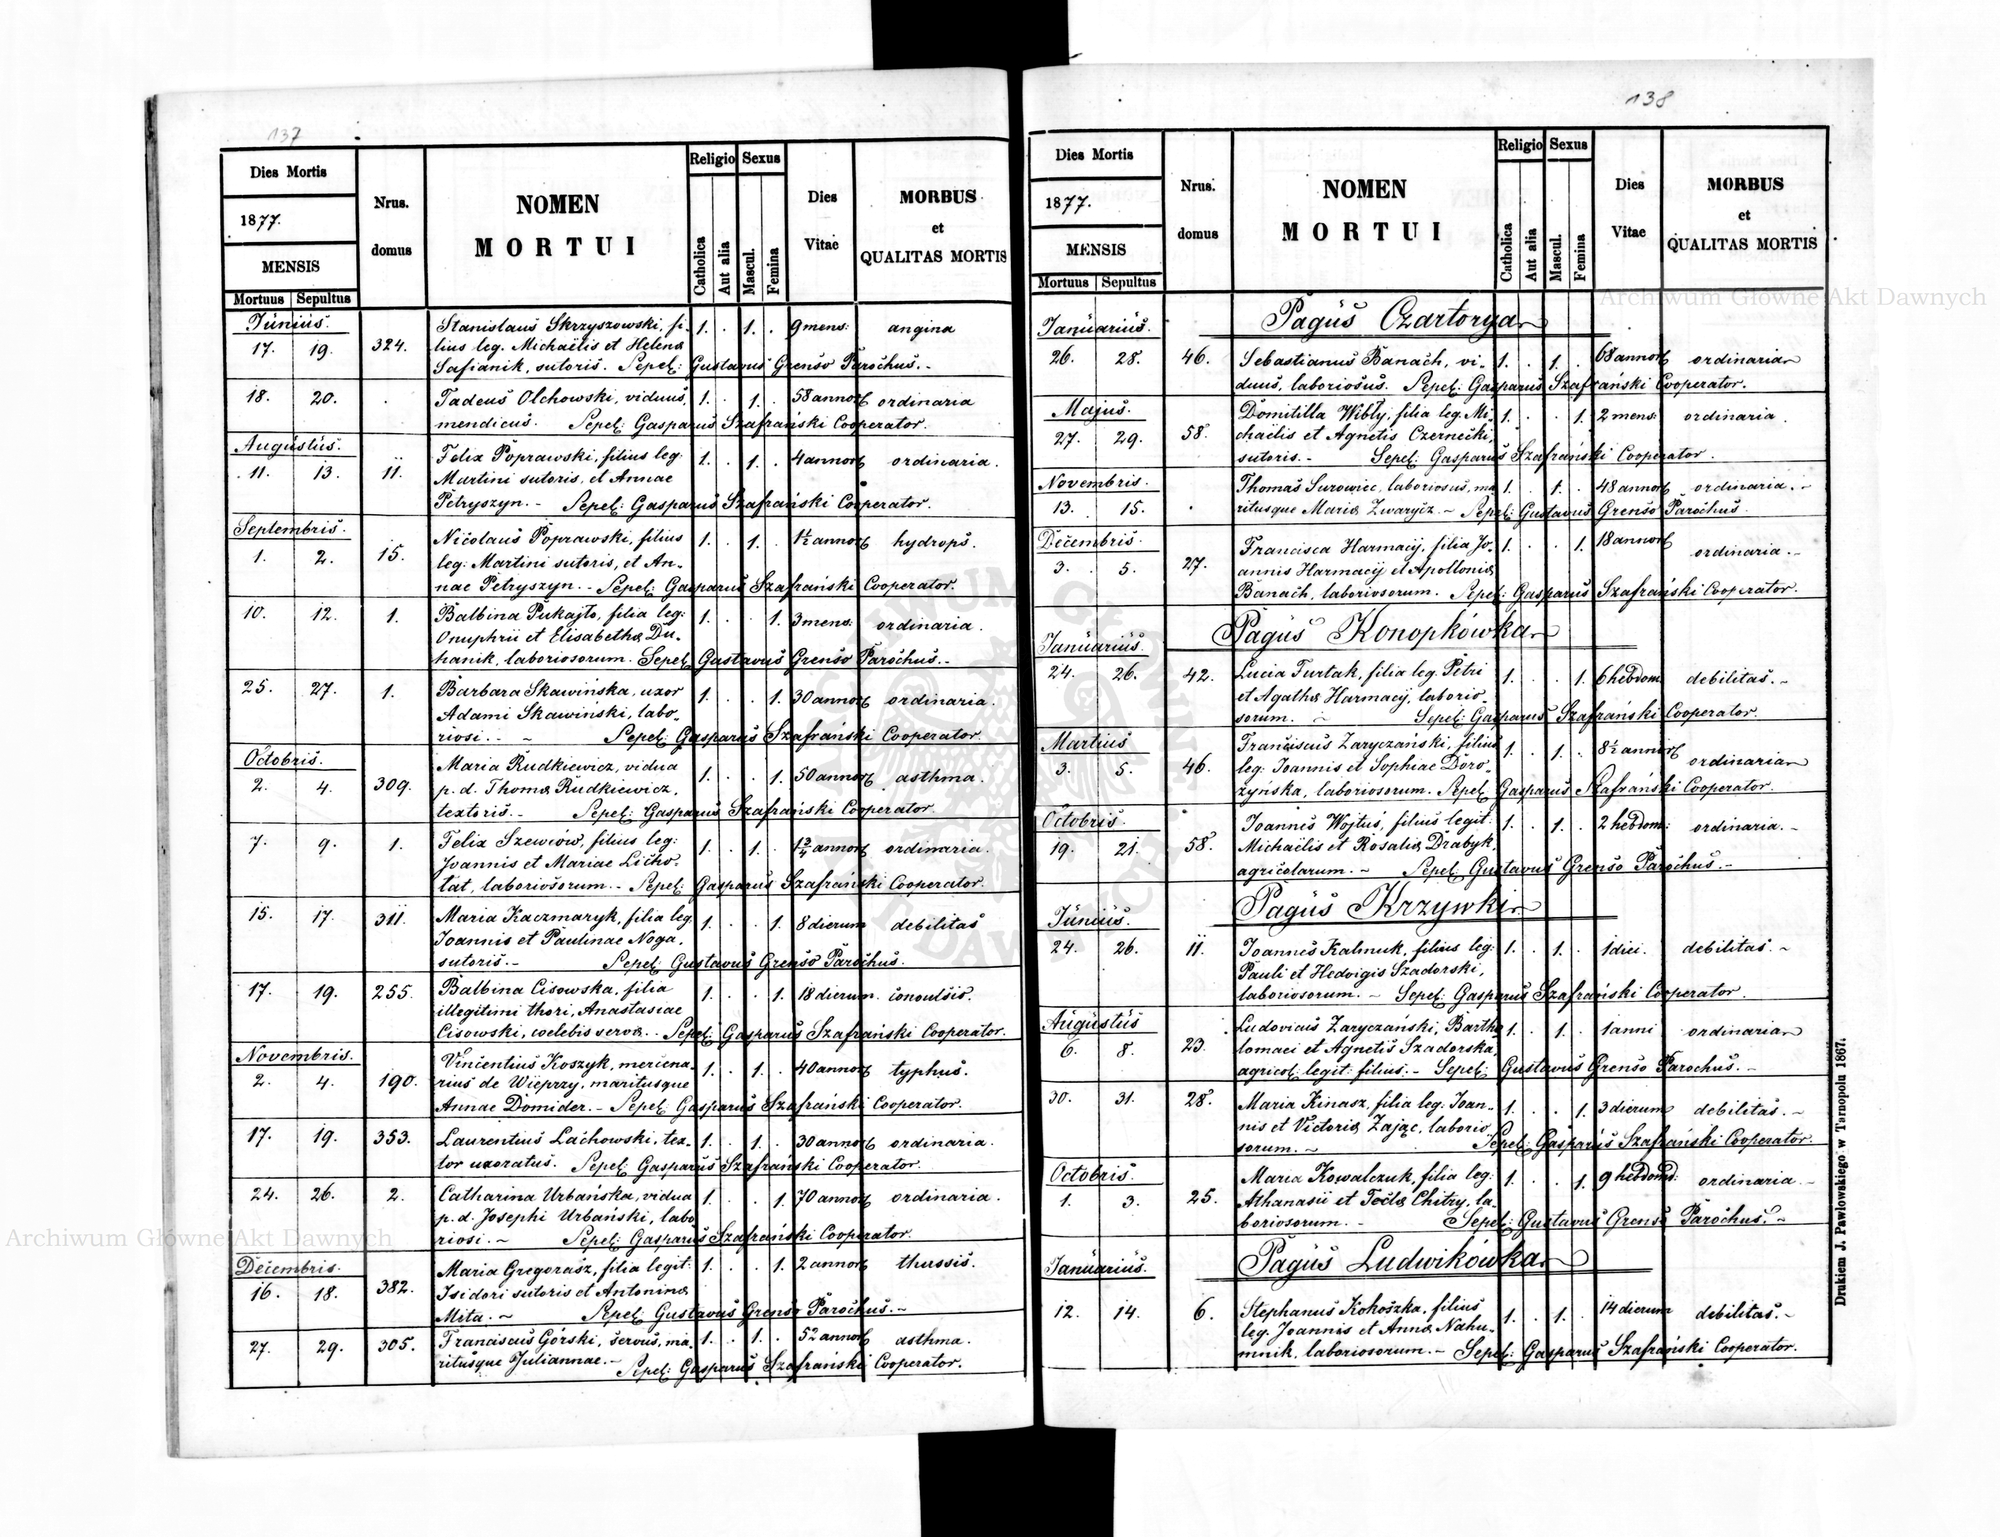 137
Dies Mortis
1877.
MENSIS
Mortuus Sepultus
Nrus. domus
NOMEN
MORTUI
Religio Sexus
Catholica Aut alia Mascul. Femina
Dies Vitae
MORBUS
et
QUALITAS MORTIS
Junius.
17. 19. 324. Stanislaus Skrzyszowski, fi- 1. . 1. . 9 mens: angina
lius leg. Michaëlis et Helenæ
Safianik, sutoris. Sepel: Gustavus Grenso Parochus.-
18. 20. . Tadeus Olchowski, viduus, 1. . 1. . 58 annor ordinaria
mendicus. Sepel: Gasparus Szafrański Cooperator.
Augustus.
11. 13. 11. Felix Poprawski, filius leg. 1. . 1. . 4 annor ordinaria.
Martini sutoris, et Annae
Petryszyn.- Sepel: Gasparus Szafrański Cooperator.
Septembris.
1. 2. 15. Nicolaus Poprawski, filius 1. . 1. . 1½ annor hydrops.
leg: Martini sutoris, et An-
nae Petryszyn.- Sepel: Gasparus Szafrański Cooperator.
10. 12. 1. Balbina Pukajło, filia leg: 1. . . 1. 3 mens: ordinaria.
Onuphrii et Elisabethæ Du-
hanik, laboriosorum. Sepel. Gustavus Grenso Parochus.-
25. 27. 1. Barbara Skawińska, uxor 1. . . 1. 30 annor ordinaria.
Adami Skawiński, labo-
riosi.- Sepel: Gasparus Szafrański Cooperator.
Octobris.
2. 4. 309. Maria Rudkiewicz, vidua 1. . . 1. 50 annor asthma.
p. d. Thomæ Rudkiewicz,
textoris.- Sepel: Gasparus Szafrański Cooperator.
7. 9. 1. Felix Szewców, filius leg: 1. . 1. . 1¾ annor ordinaria.
Joannis et Mariae Licho-
tat, laboriosorum.- Sepel: Gasparus Szafrański Cooperator.
15. 17. 311. Maria Kaczmaryk, filia leg. 1. . . 1. 8 dierum debilitas
Joannis et Paulinae Noga,
sutoris.- Sepel: Gustavus Grenso Parochus.
17. 19. 255. Balbina Cisowska, filia 1. . . 1. 18 dierum. convulsio.
illegitimi thori, Anastasiae
Cisowski, coelebis servæ.- Sepel: Gasparus Szafrański Cooperator.
Novembris.
2. 4. 190. Vincentius Koszyk, mercena- 1. . 1. . 40 annor typhus.
rius de Wieprzy, maritusque
Annae Domider.- Sepel: Gasparus Szafrański Cooperator.
17. 19. 353. Laurentius Lachowski, tex- 1. . 1. . 30 annor ordinaria.
tor uxoratus. Sepel: Gasparus Szafrański Cooperator.
24. 26. 2. Catharina Urbańska, vidua 1. . . 1. 70 annor ordinaria.
p. d. Josephi Urbański, labo
riosi.- Sepel: Gasparus Szafrański Cooperator.
Decembris.
16. 18. 382. Maria Gregorasz, filia legit: 1. . . 1. 2 annor thussis.
Isidori sutoris et Antoninæ
Mita.- Sepel: Gustavus Grenso Parochus.-
27. 29. 305. Franciscus Górski, servus, ma- 1. . 1. . 52 annor asthma.
ritusque Juliannae.- Sepel: Gasparus Szafrański Cooperator.
138
Dies Mortis
1877.
MENSIS
Mortuus Sepultus
Nrus. domus
NOMEN
MORTUI
Religio Sexus
Catholica Aut alia Mascul. Femina
Dies Vitae
MORBUS
et
QUALITAS MORTIS
Januarius. Pagus Czartorya
26. 28. 46. Sebastianus Banach, vi- 1. . 1. . 68 annor ordinaria
duus, laboriosus. Sepel: Gasparus Szafrański Cooperator.
Majus.
27. 29. 58. Domitilla Wibły, filia leg. Mi- 1. . . 1. 2 mens: ordinaria.
chaëlis et Agnetis Czernecki,
sutoris.- Sepel: Gasparus Szafrański Cooperator.
Novembris.
13. 15. . Thomas Surowiec, laboriosus, ma 1. . 1. . 48 annor ordinaria.-
ritusque Mariæ Zwarycz.- Sepel: Gustavus Grenso Parochus.
Decembris.
3. 5. 27. Francisca Harmacij, filia Jo- 1. . . 1. 18 annor ordinaria.-
annis Harmacij et Apolloniæ
Banach, laboriosorum. Sepel: Gasparus Szafrański Cooperator.
Pagus Konopkówka
Januarius.
24. 26. 42. Lucia Furtak, filia leg. Petri 1. . . 1. 6 hebdom: debilitas.-
et Agathæ Harmacij, laborio-
sorum.- Sepel: Gasparus Szafrański Cooperator.
Martius
3. 5. 46. Franciscus Zaryczański, filius 1. . 1. . 8½ annor ordinaria
leg: Joannis et Sophiae Doro-
żyńska, laboriosorum. Sepel: Gasparus Szafrański Cooperator.
Octobris.
19. 21. 58. Joannes Wojtuś, filius legit. 1. . 1. . 2 hebdom: ordinaria.-
Michaëlis et Rosaliæ Drabyk,
agricolarum.- Sepel: Gustavus Grenso Parochus.-
Pagus Krzywki
Junius.
24. 26. 11. Joannes Kalmuk, filius leg: 1. . 1. . 1 diei. debilitas.-
Pauli et Hedvigis Szadorski,
laboriosorum.- Sepel: Gasparus Szafrański Cooperator.
Augustus
6. 8. 23. Ludovicus Zaryczański, Bartho 1. . 1. . 1 anni ordinaria
lomaei et Agnetis Szadorska,
agricol. legit: filius.- Sepel: Gustavus Grenso Parochus.-
30. 31. 28. Maria Kinasz, filia leg: Joan- 1. . . 1. 3 dierum debilitas.-
nis et Victoriæ Zając, laborio
sorum.- Sepel: Gasparus Szafrański Cooperator.
Octobris.
1. 3. 25. Maria Kowalczuk, filia leg: 1. . . 1. 9 hebdomd: ordinaria.-
Athanasii et Teclæ Chitry, la-
boriosorum.- Sepel: Gustavus Grenso Parochus.-
Pagus Ludwikówka
Januarius.
12. 14. 6. Stephanus Kokoszka, filius 1. . 1. . 14 dierum debilitas.-
leg. Joannis et Annæ Nahu-
mnik, laboriosorum.- Sepel: Gasparus Szafrański Cooperator.
Drukiem J. Pawłowskiego w Tarnopolu 1867.
Archiwum Główne Akt Dawnych
Archiwum Główne Akt Dawnych
ARCHIWUM GŁÓWNE AKT DAWNYCH